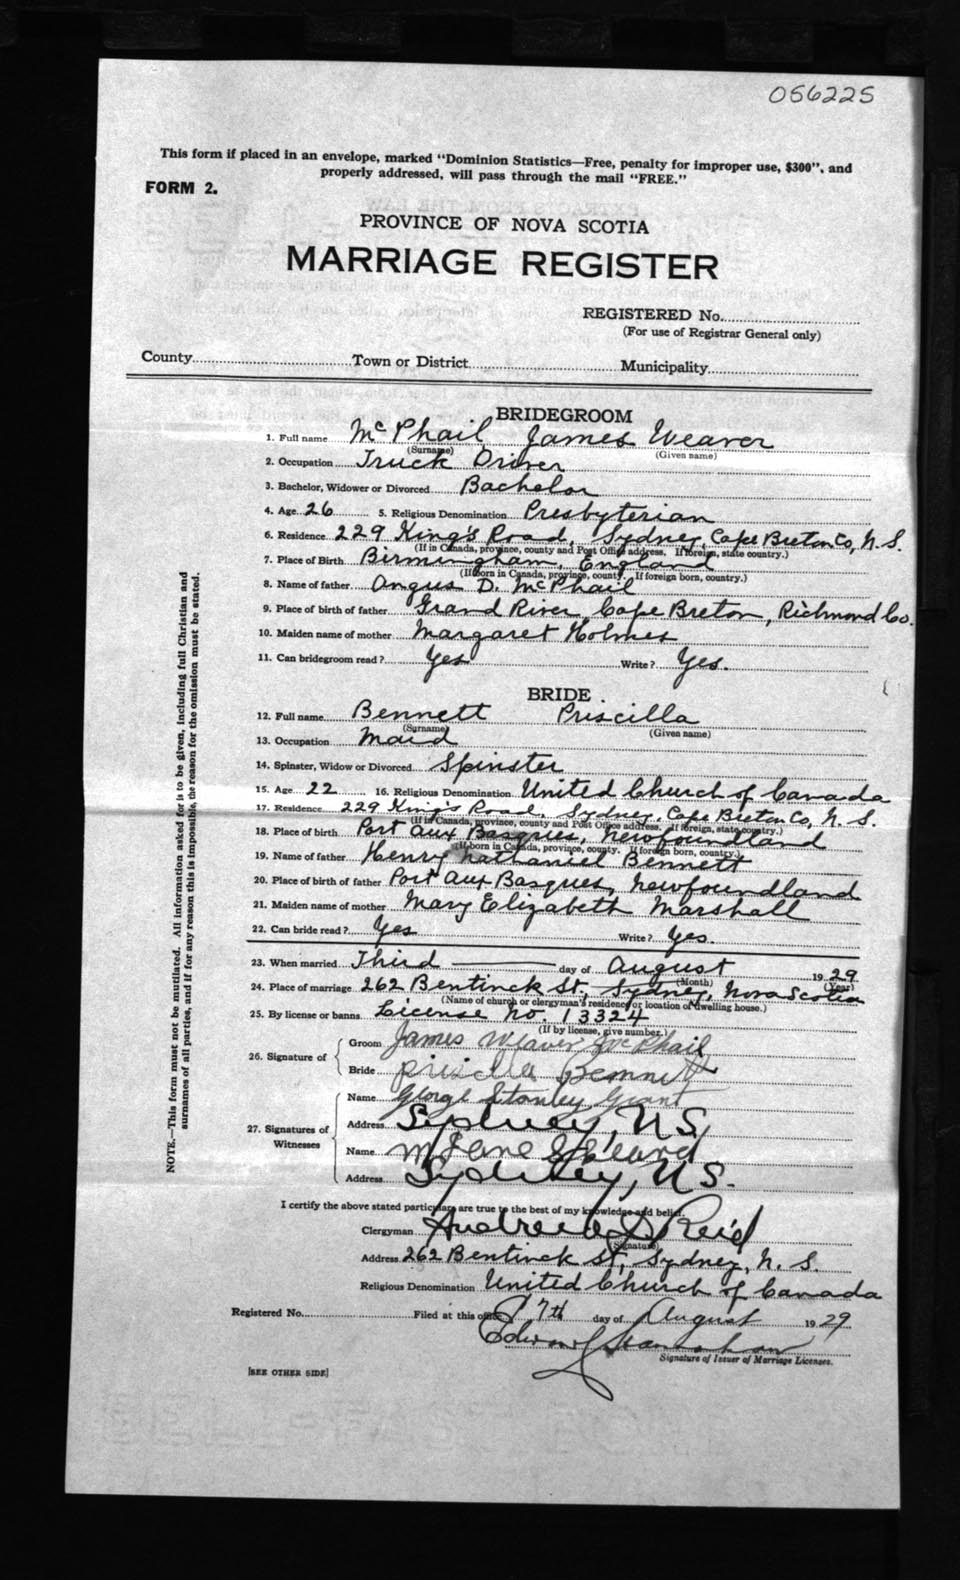 056225
This form if placed in an envelope, marked "Dominion Statistics—Free, penalty for improper use, $300", and
properly addressed, will pass through the mail "FREE."
FORM 2.
PROVINCE OF NOVA SCOTIA
MARRIAGE REGISTER
REGISTERED No.
(For use of Registrar General only)
County Town or District Municipality
BRIDEGROOM
1. Full name McPhail James Weaver
(Surname) (Given name)
2. Occupation Truck Driver
3. Bachelor, Widower or Divorced Bachelor
4. Age 26 5. Religious Denomination Presbyterian
6. Residence 229 King's Road, Sydney, Cape Breton Co, N.S.
(If in Canada, province, county and Post Office address. If foreign, state country.)
7. Place of Birth Birmingham, England
(If born in Canada, province, county. If foreign born, country.)
8. Name of father Angus D. McPhail
9. Place of birth of father Grand River, Cape Breton, Richmond Co.
10. Maiden name of mother Margaret Holmes
11. Can bridegroom read? Yes Write? Yes.
BRIDE
12. Full name Bennett Priscilla
(Surname) (Given name)
13. Occupation Maid
14. Spinster, Widow or Divorced Spinster
15. Age 22 16. Religious Denomination United Church of Canada
17. Residence 229 King's Road, Sydney, Cape Breton Co, N. S.
(If in Canada, province, county and Post Office address. If foreign, state country.)
18. Place of birth Port Aux Basques, Newfoundland
(If born in Canada, province, county. If foreign born, country.)
19. Name of father Henry Nathaniel Bennett
20. Place of birth of father Port Aux Basques, Newfoundland
21. Maiden name of mother Mary Elizabeth Marshall
22. Can bride read? Yes Write? Yes.
23. When married Third day of August 1929
(Month) (Year)
24. Place of marriage 262 Bentinck St., Sydney, Nova Scotia
(Name of church or clergyman's residence or location of dwelling house.)
25. By license or banns License No. 13324
(If by license, give number.)
26. Signature of Groom James Weaver McPhail
Bride Priscilla Bennett
27. Signatures of Witnesses
Name George Stanley Grant
Address Sydney, N.S.
Name
Address Sydney, N.S.
I certify the above stated particulars are true to the best of my knowledge and belief.
Clergyman Reid
(Signature)
Address 262 Bentinck St, Sydney, N. S.
Religious Denomination United Church of Canada
Registered No. Filed at this office 7th day of August 1929
Signature of Issuer of Marriage Licenses.
[SEE OTHER SIDE]
NOTE.—This form must not be mutilated. All information asked for is to be given, including full Christian and
surnames of all parties, and if for any reason this is impossible, the reason for the omission must be stated.